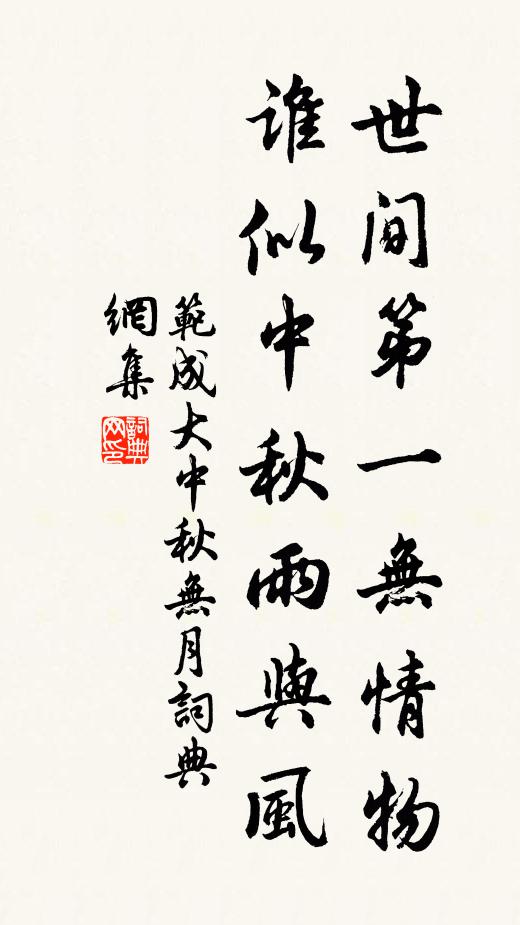 世間第一無情物
誰似中秋雨與風
範成大中秋無月詞典
網集
詞典
网印